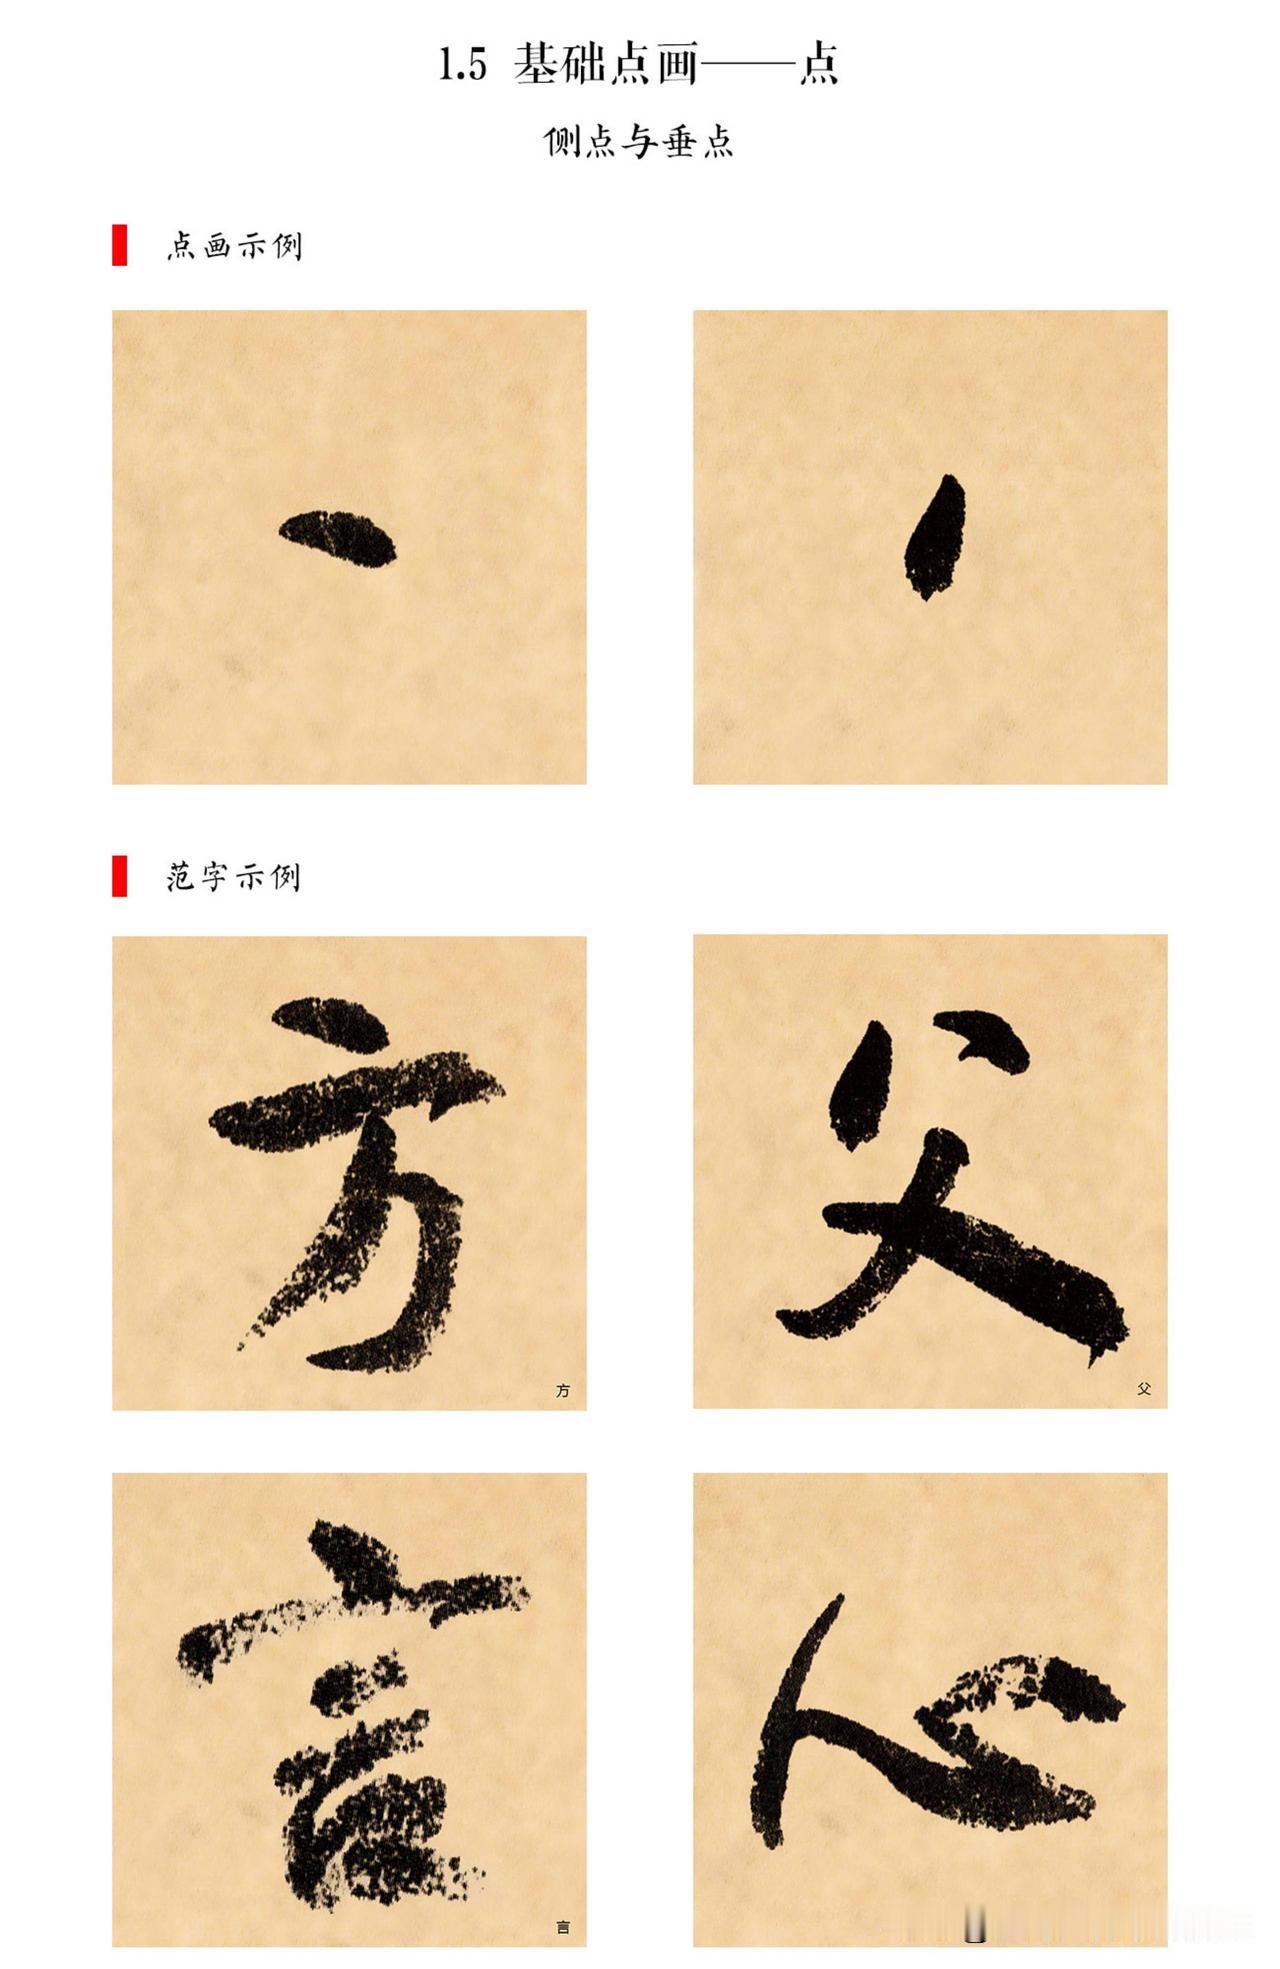 1.5 基础点画——点
侧点与垂点
点画示例
范字示例
方
父
方
父
言
心
言